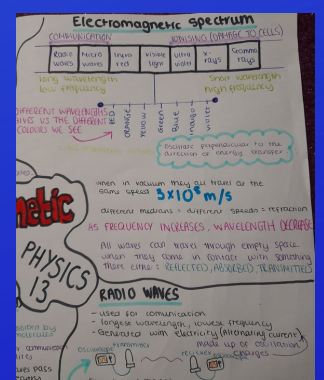 Electromagnetic spectrum
COMMUNICATION
IONISING (DAMAGE TO CELLS)
Radio waves
Micro waves
Infra red
visible light
ultra violet
x-rays
Gamma rays
long wavelength
low frequency
Short wavelength
high frequency
DIFFERENT WAVELENGTHS
GIVES US THE DIFFERENT
COLOURS WE SEE
orange
yellow
green
Blue
indigo
violet
Oscillate perpendicular to the
direction of energy transfer
when in vacuum they all travel at the
same speed 3x10⁸ m/s
different mediums = different speeds = refraction
AS FREQUENCY INCREASES, WAVELENGTH DECREASE
All waves can travel through empty space
when they come in contact with something
there : REFLECTED, ABSORBED, TRANSMITTED
netic
PHYSICS
13
RADIO WAVES
- used for comunication
- longest wavelength, lowest frequency
- Generated with Electricity (Alternating current)
made up of oscillating
charges
oscilloscope
transmitter
reciever